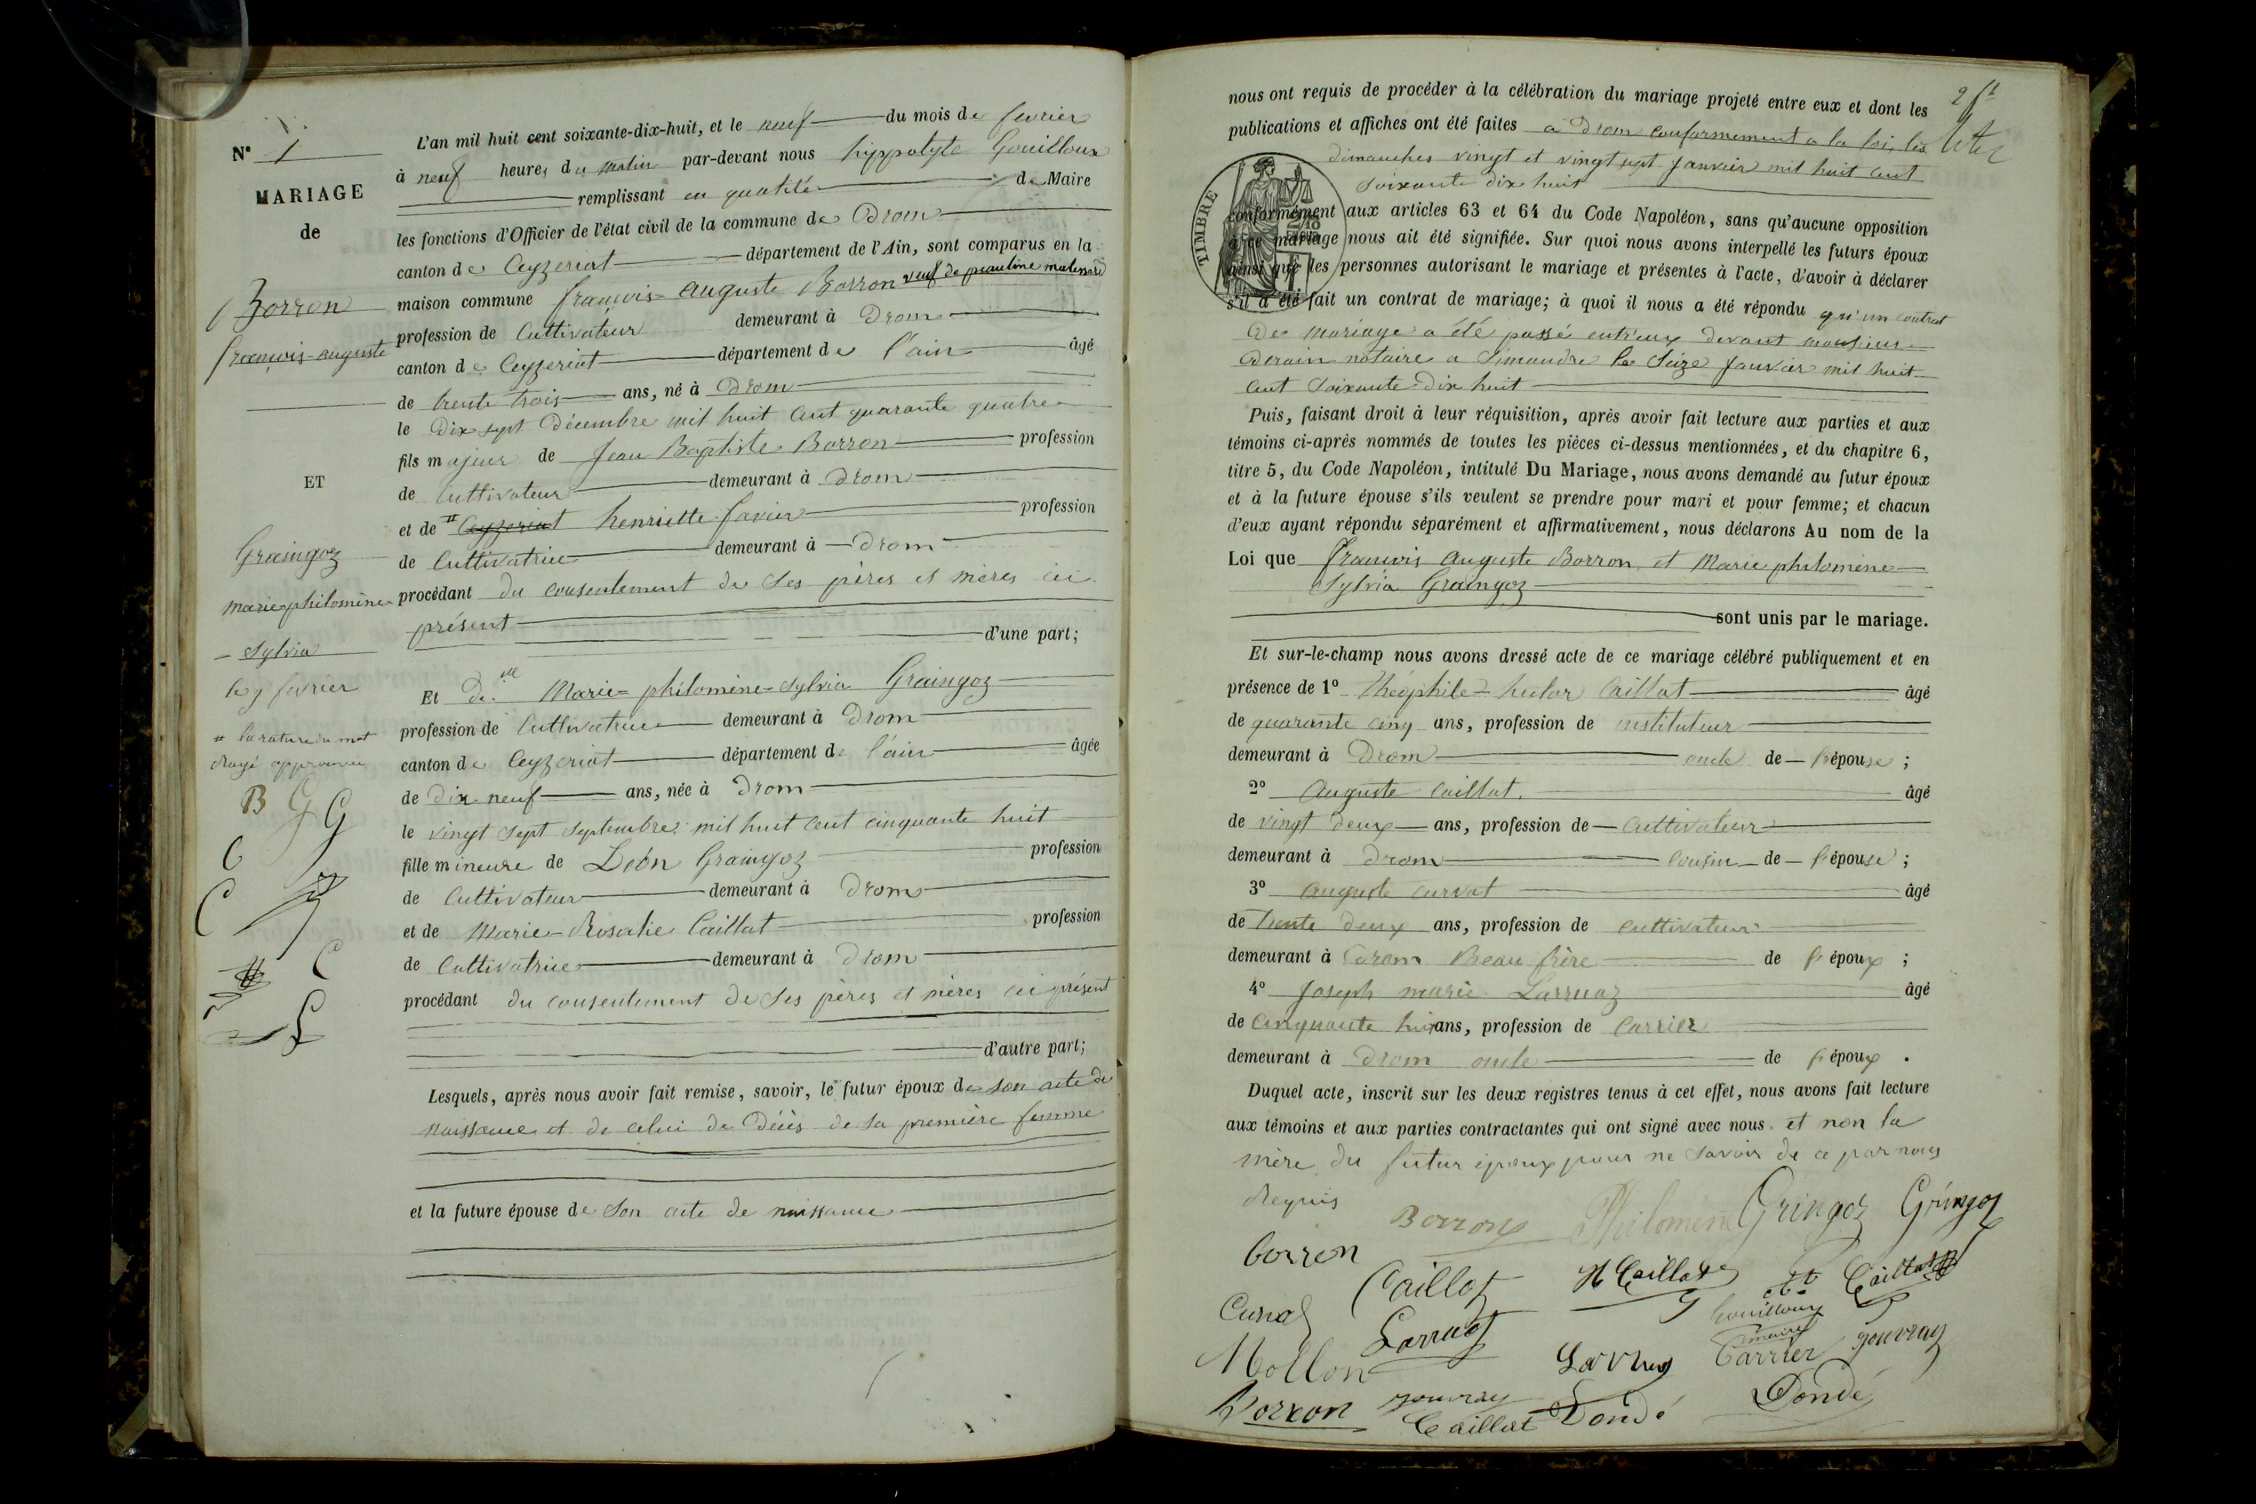 N° 1
MARIAGE
de
Borron
françois-auguste
ET
Graingoz
marie philomène
Sylvia
le 9 fevrier
# la rature du mot
rayé approuvée
B G G
C
C
C
L
L'an mil huit cent soixante-dix-huit, et le neuf du mois de fevrier
à neuf heures du matin par-devant nous hyppolyte Gouilloux
remplissant en qualité de Maire
les fonctions d'Officier de l'état civil de la commune de Drom
canton de Ceyzeriat département de l'Ain, sont comparus en la
maison commune françois-auguste Borron veuf de
profession de Cultivateur demeurant à Drom
canton de Ceyzeriat département de l'ain âgé
de trente trois ans, né à Drom
le Dix sept Décembre mil huit cent quarante quatre
fils majeur de Jean Baptiste Borron profession
de Cultivateur demeurant à Drom
et de # Ceyzeriat henriette favier profession
de Cultivatrice demeurant à Drom
procédant du consentement de Ses pères et mères ici
présent
d'une part;
Et de.lle Marie-philomène-Sylvia Graingoz
profession de Cultivatrice demeurant à Drom
canton de Ceyzeriat département de l'ain âgée
de Dix neuf ans, née à Drom
le vingt sept septembre mil huit cent cinquante huit
fille mineure de Léon Graingoz profession
de Cultivateur demeurant à Drom
et de Marie-Rosalie Caillat profession
de Cultivatrice demeurant à Drom
procédant du consentement de Ses pères et mères ici présent
d'autre part;
Lesquels, après nous avoir fait remise, savoir, le futur époux de son acte de
naissance et de celui de Décès de sa première femme
et la future épouse de Son acte de naissance
2 ft
nous ont requis de procéder à la célébration du mariage projeté entre eux et dont les
publications et affiches ont été faites à Drom conformement a la loi, les
dimanches vingt et vingt sept Janvier mil huit cent
Soixante dix huit
TIMBRE
conformément aux articles 63 et 64 du Code Napoléon, sans qu'aucune opposition
à ce mariage nous ait été signifiée. Sur quoi nous avons interpellé les futurs époux
ainsi que les personnes autorisant le mariage et présentes à l'acte, d'avoir à déclarer
s'il a été fait un contrat de mariage; à quoi il nous a été répondu qu'un contrat
De mariage a été passé entr'eux devant monsieur
Derain notaire a Simandre le Seize Janvier mil huit
cent Soixante Dix huit
Puis, faisant droit à leur réquisition, après avoir fait lecture aux parties et aux
témoins ci-après nommés de toutes les pièces ci-dessus mentionnées, et du chapitre 6,
titre 5, du Code Napoléon, intitulé Du Mariage, nous avons demandé au futur époux
et à la future épouse s'ils veulent se prendre pour mari et pour femme; et chacun
d'eux ayant répondu séparément et affirmativement, nous déclarons Au nom de la
Loi que françois auguste Borron et Marie philomène
Sylvia Graingoz
sont unis par le mariage.
Et sur-le-champ nous avons dressé acte de ce mariage célébré publiquement et en
présence de 1° Théophile-hector Caillat âgé
de quarante cinq ans, profession de instituteur
demeurant à Drom oncle de l'épouse ;
2° Auguste Caillat. âgé
de vingt deux ans, profession de Cultivateur
demeurant à Drom Cousin de l'épouse ;
3° auguste curvat âgé
de trente deux ans, profession de cultivateur
demeurant à Drom Beau frère de l'époux ;
4° Joseph marie Larruaz âgé
de cinquante huit ans, profession de Carrier
demeurant à Drom oncle de l'époux .
Duquel acte, inscrit sur les deux registres tenus à cet effet, nous avons fait lecture
aux témoins et aux parties contractantes qui ont signé avec nous. et non la
mère du futur époux pour ne savoir de ce par nous
requis
Borron Philomène Gringoz Gringoz
borron Caillat H Caillat Caillat
Curvat Larruaz Gouilloux
maire
Mollon Larruaz Carrier gouvray
Borron gouvray Dondé Dondé
Caillat